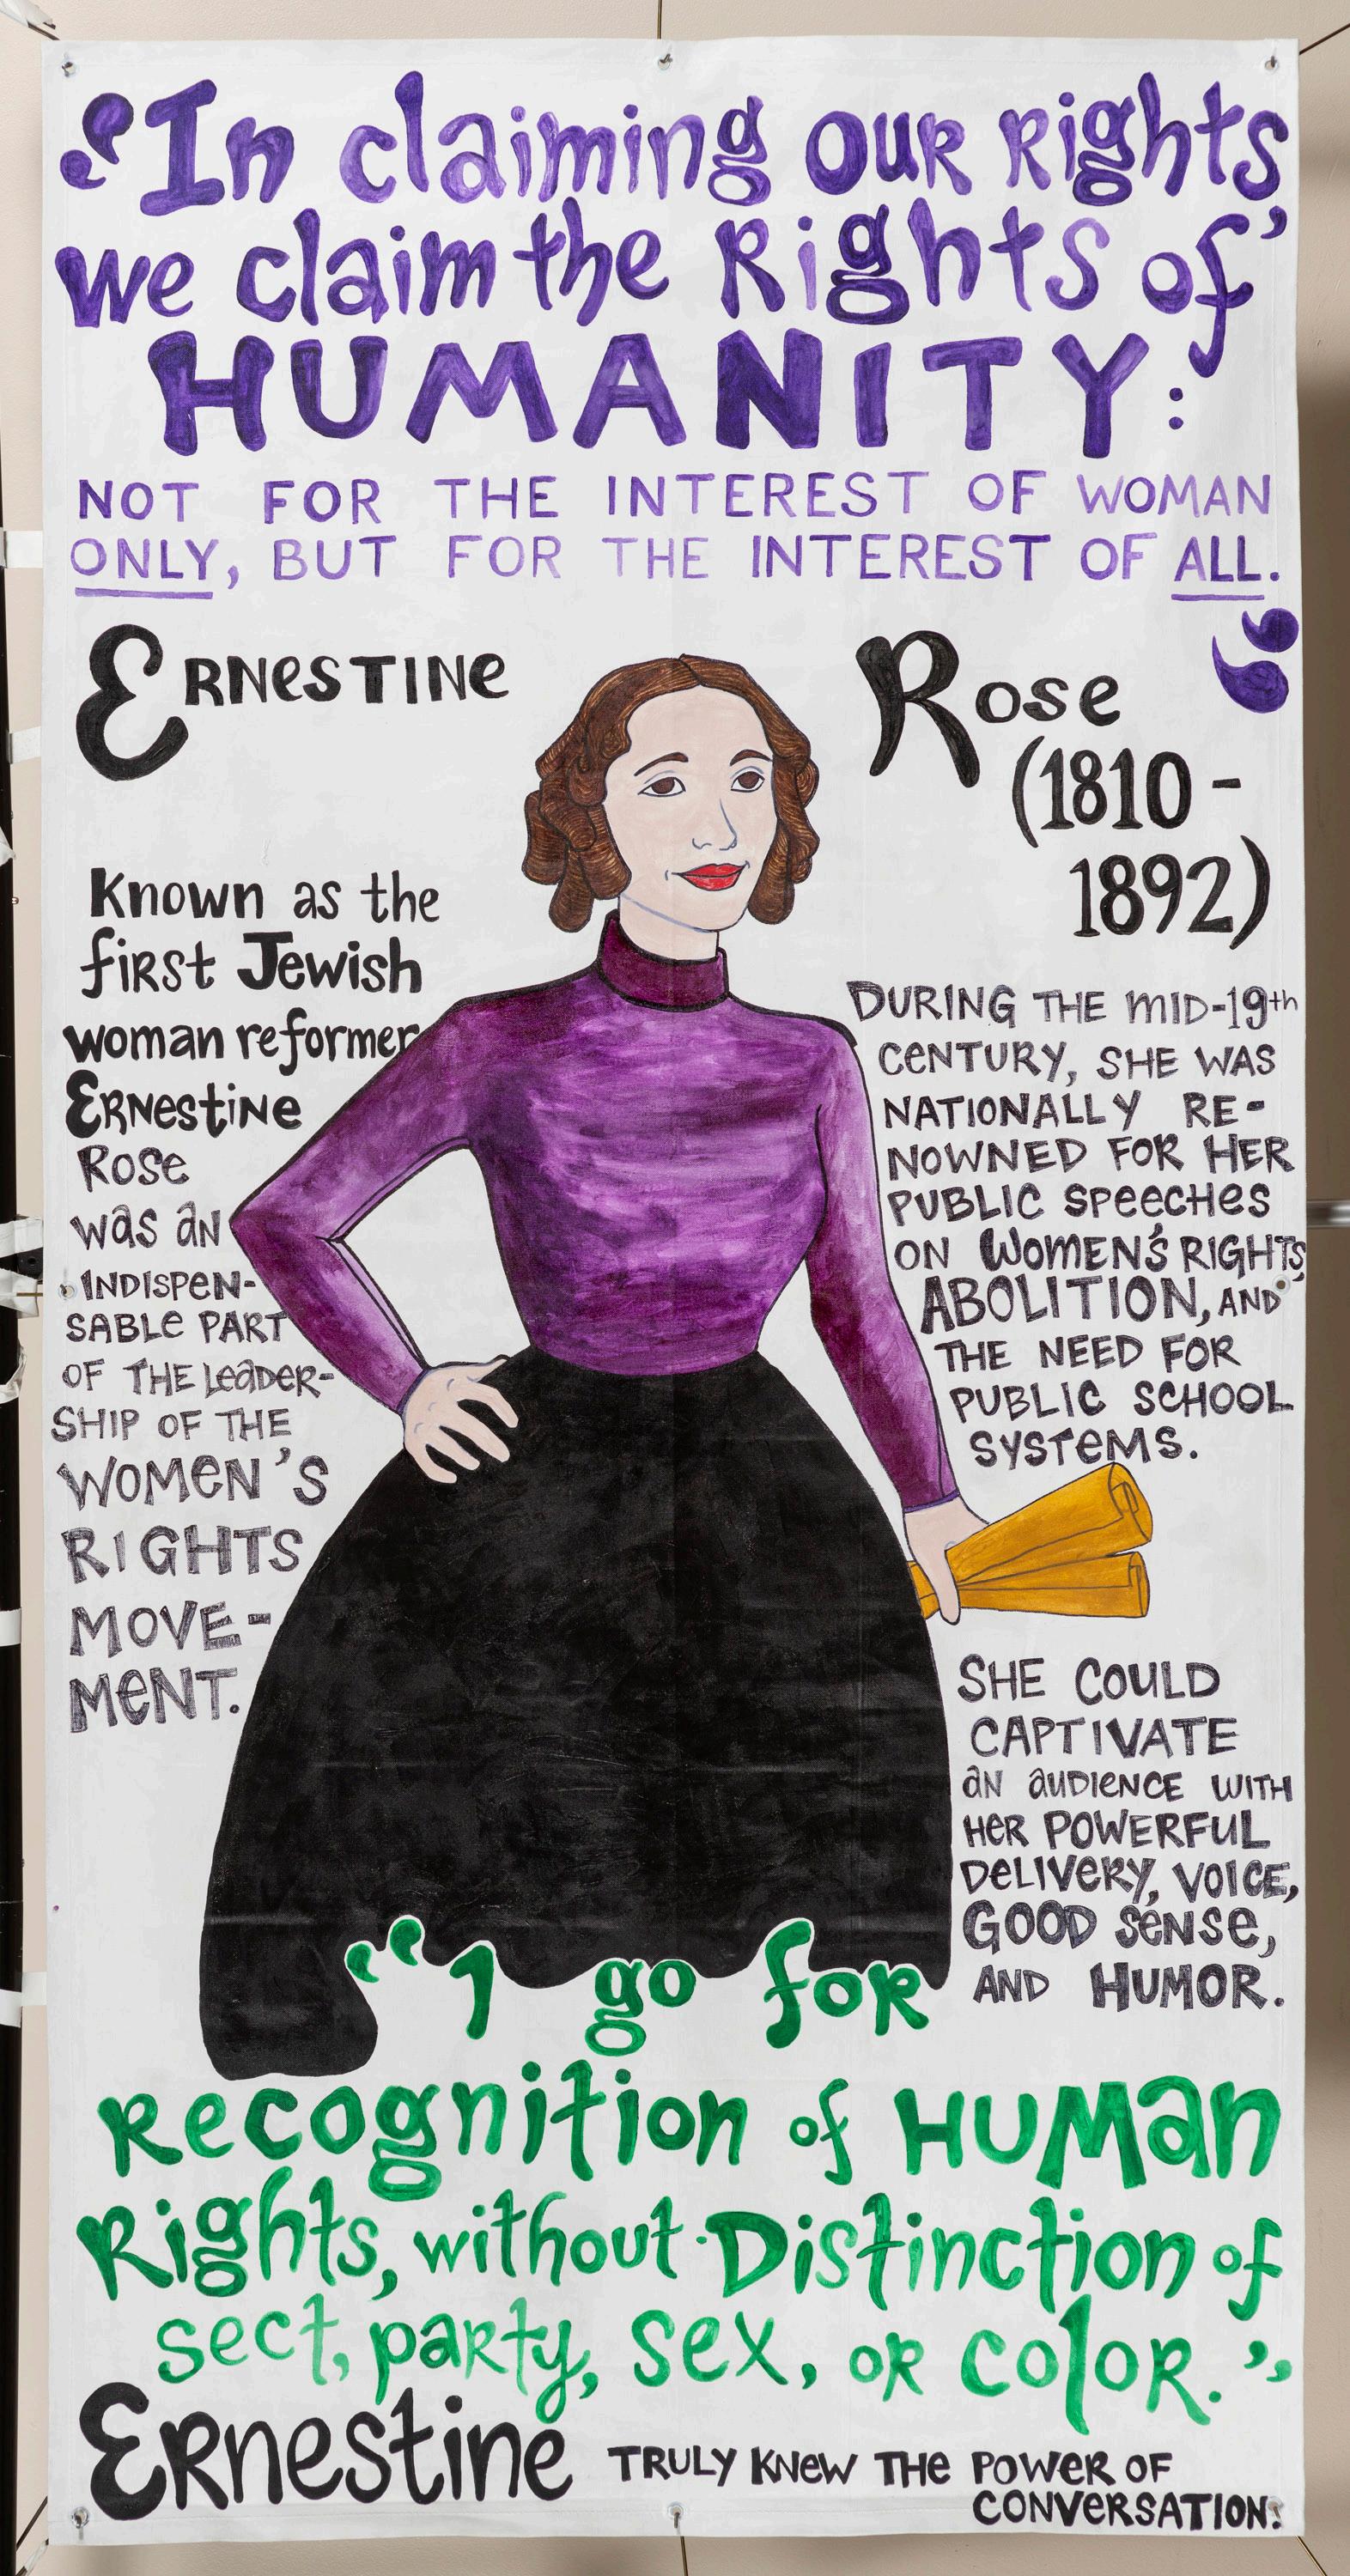 “In claiming our rights,
we claim the Rights of
HUMANITY:
NOT FOR THE INTEREST OF WOMAN
ONLY, BUT FOR THE INTEREST OF ALL.”
ERNESTINE
ROSE
(1810 -
1892)
Known as the
first Jewish
woman reformer
ERNESTINE
ROSE
was an
INDISPEN-
SABLE PART
OF THE LEADER-
SHIP OF THE
WOMEN'S
RIGHTS
MOVE-
MENT.
DURING THE MID-19th
CENTURY, SHE WAS
NATIONALLY RE-
NOWNED FOR HER
PUBLIC SPEECHES
ON WOMEN'S RIGHTS,
ABOLITION, AND
THE NEED FOR
PUBLIC SCHOOL
SYSTEMS.
SHE COULD
CAPTIVATE
AN AUDIENCE WITH
HER POWERFUL
DELIVERY, VOICE,
GOOD SENSE,
AND HUMOR.
“I go for
Recognition of HUMAN
Rights, without Distinction of
sect, party, sex, or color.”
Ernestine TRULY KNEW THE POWER OF
CONVERSATION.